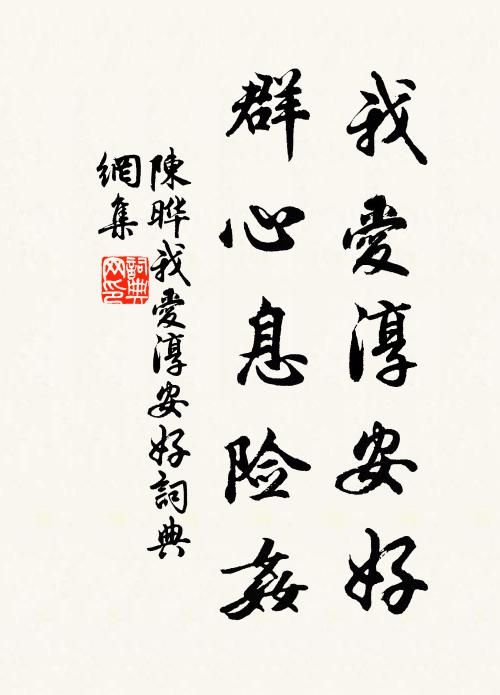 我愛淳安好
群心息险姦
陳晔我愛淳安好詞典
網集
詞典
网印